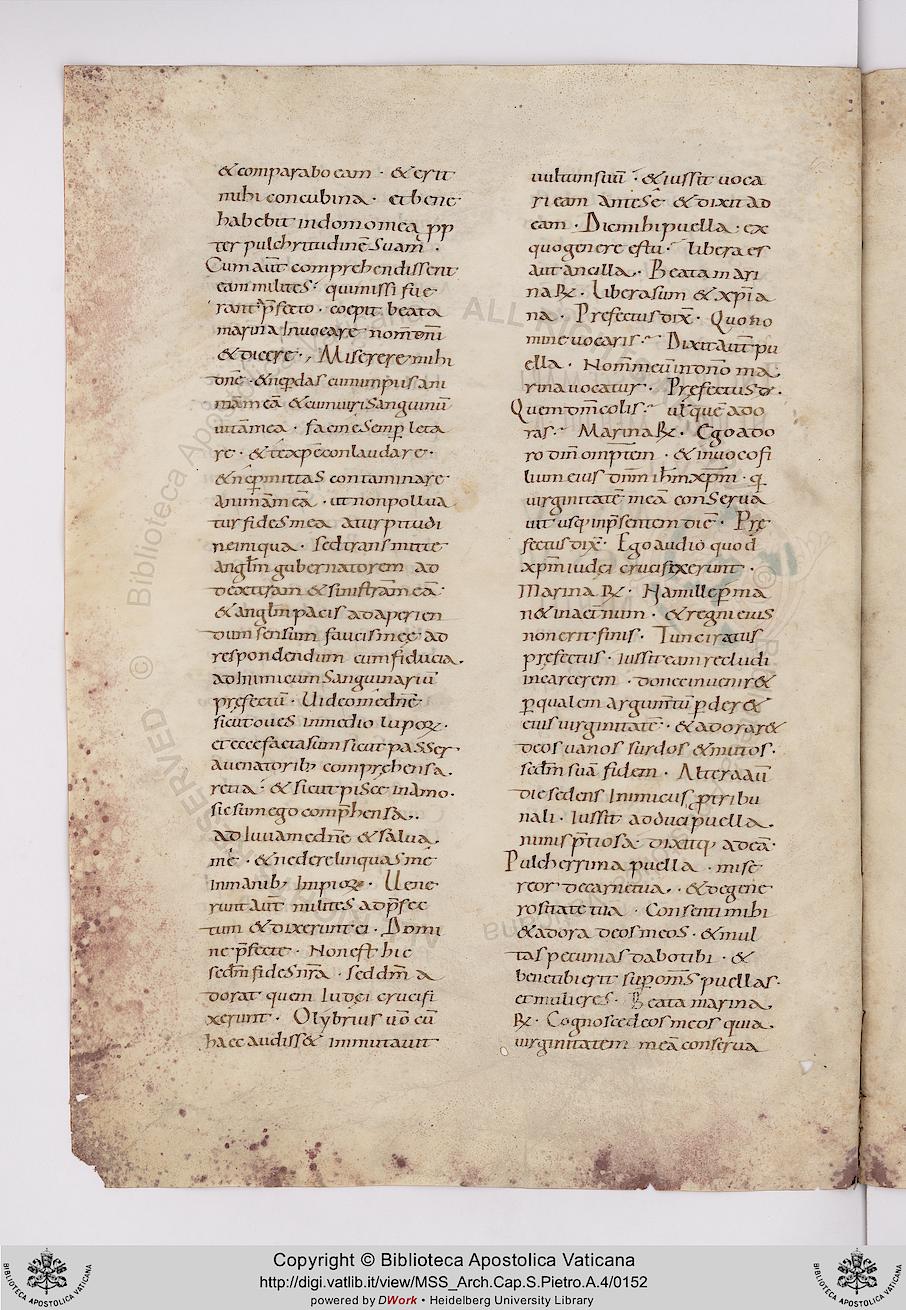 & comparabo eam · & erit
mihi concubina · et bene
habebit in domo mea pp
ter pulchritudinē suam ·
Cum aut̄ comprehendissent
eam milites · qui missi fue
rant p̄fecto · coepit beata
marina Invocare nom̄ dn̄i
& dicere · Miserere mihi
dn̄e · & ne p̄das cum impiis ani
mā meā & cum viri sanguinū
vitā mea · fac me semp̄ leta
re · & te xp̄e conlaudare ·
& ne p̄mittas contaminare
animā meā · ut non pollua
tur fides mea a turpitudi
ne iniqua · sed transmitte
anglm̄ gubernatorem ad
dexteram & sinistrā meā
& anglm̄ pacis ad aperien
dum sensum faucis meę ad
respondendum cum fiducia ·
ad Inimicum sanguinariū
pręfectū · Video me dn̄e
sicut oves in medio lupoꝝ ·
et ecce facta sum sicut passer
a venatorib; comprehensa ·
retia · & sicut pisce in amo ·
sic sum ego comp̄hensa ·
adIuva me dn̄e & salva
me · & ne derelinquas me
in manib; Impioꝝ · Vene
runt aut̄ milites ad p̄fec
tum & dixerunt ei · Domi
ne p̄fecte · Non est hic
sedm̄ fides nr̄a · sed dm̄ a
dorat quem Iudęi crucifi
xerunt · Olybrius v̄o cū
haec audiss& immutavit
vultum suū · & iussit voca
ri eam ante se · & dixit ad
eam · Dic mihi puella · ex
quo genere es tu · libera es
aut ancilla · Beata mari
na ℞ · Libera sum & xp̄ia
na · Prefectus dix̄ · Quo no
mine vocaris · Dixit aut̄ pu
ella · Nom̄ meū in dn̄o ma
rina vocatur · Pręfectus dr̄ ·
Quem dm̄ colis · ul̄ quē ado
ras · Marina ℞ · Ego ado
ro dm̄ omp̄tem · & invoco fi
lium eius dnm̄ ihm̄ xp̄m · q̄
virginitatē meā conserva
vit usq; in p̄sentem diē · Prę
fectus dix̄ · Ego audio quod
xp̄m iudęi crucifixerunt ·
Marina ℞ · Nam ille p̄ma
n& in aet̄num · & regni eius
non erit finis · Tunc iratus
pręfectus · iussit eam recludi
in carcerem · donec invenir&
p̄ qualem argum̄tū p̄der&
eius virginitatē · & adorar&
deos vanos surdos & mutos ·
sedm̄ suā fidem · Altera aū
die sedens Inimicus p̄ tribu
nali · Iussit adduci puella
nimis p̄tiosa · dixitq; ad eā ·
Pulcherrima puella · mise
reor de carne tua · & de gene
rositate tua · Consenti mihi
& adora deos meos · & mul
tas pecunias dabo tibi · &
bene tibi erit sup̄ om̄s puellas
et mulieres · Beata marina
℞ · Cognosce deos meos quia
virginitatem meā conserva
Copyright © Biblioteca Apostolica Vaticana
http://digi.vatlib.it/view/MSS_Arch.Cap.S.Pietro.A.4/0152
powered by DWork • Heidelberg University Library